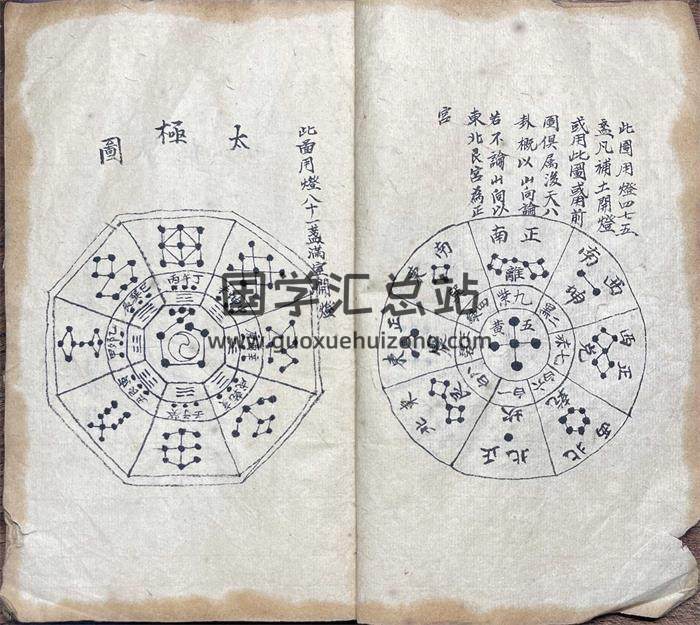 此圖用燈四七五
盞凡補土開燈
或用此圖或用前
圖俱属後天八
卦概以山向論
若不論山向以
東北艮宮為正
宮
正南
離
九紫
西南
坤
黑二
正西
兌
七赤
西北
乾
六白
正北
坎
一白
五黄
此圖用燈八十一盞滿
開燈
太極圖
丙午丁
壬子癸
国学汇总站
www.guoxuehuizong.com